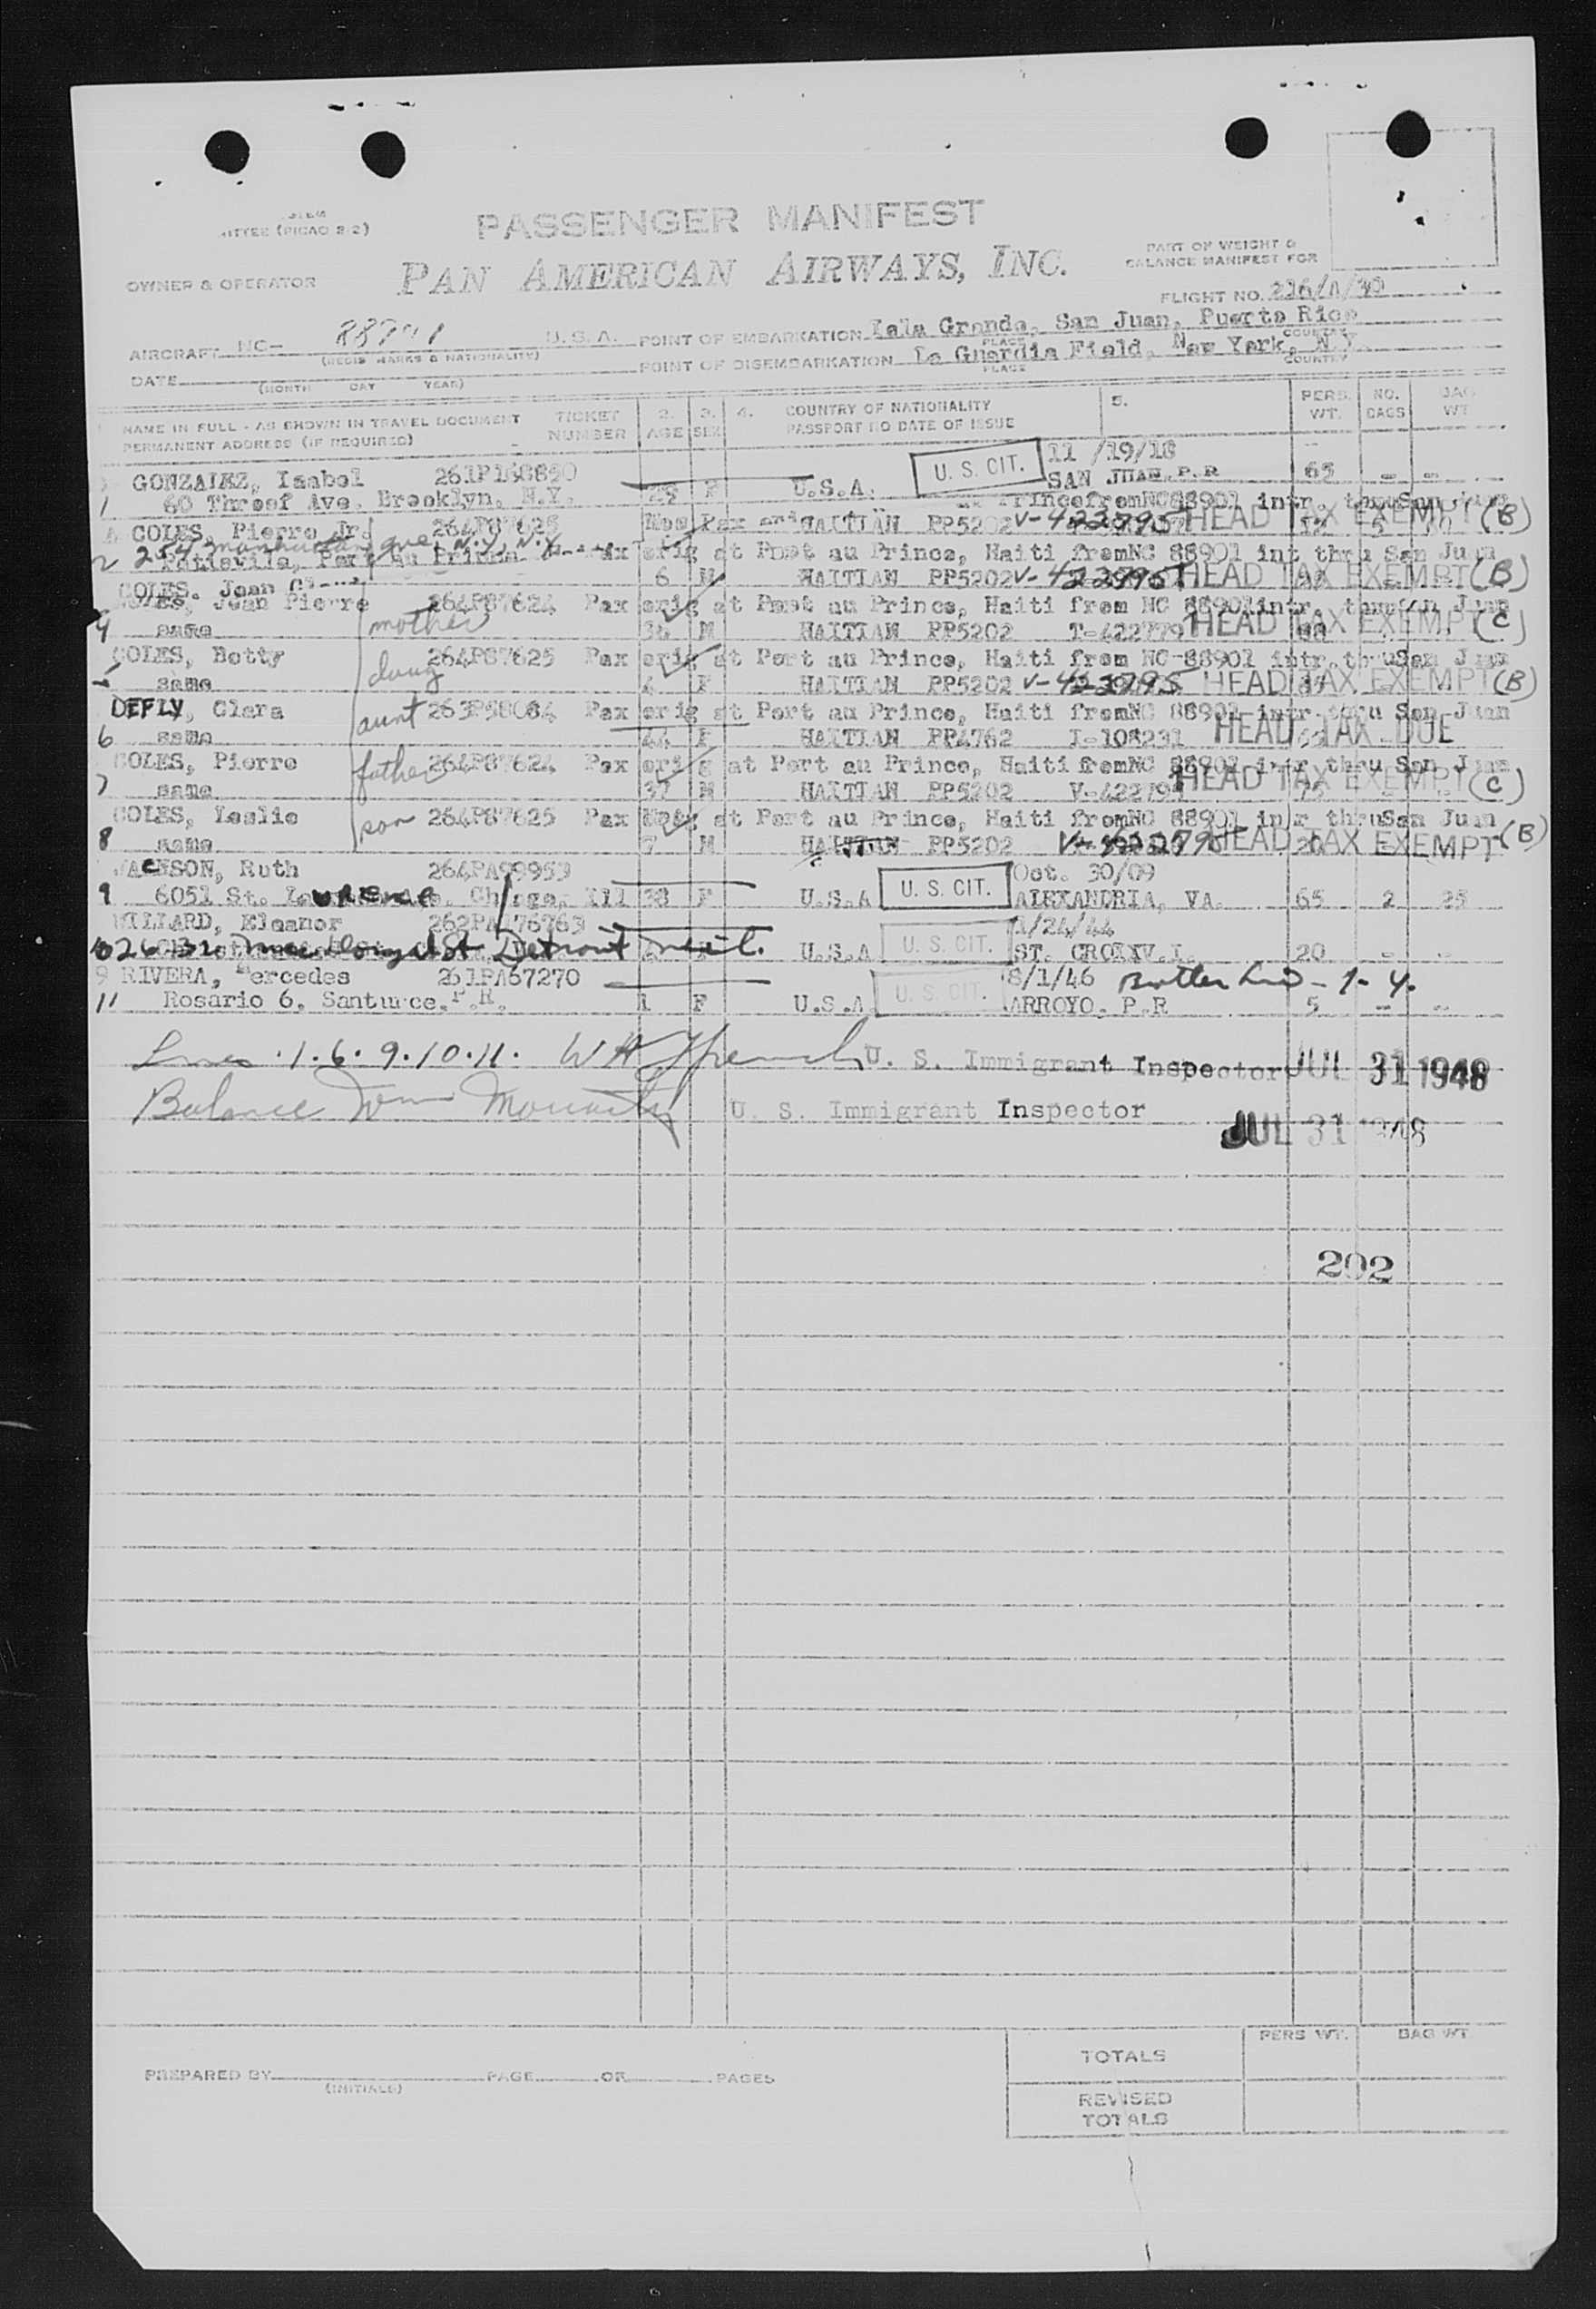 PASSENGER MANIFEST
PAN AMERICAN AIRWAYS, INC.
PART OF WEIGHT &
BALANCE MANIFEST FOR
OWNER & OPERATOR
FLIGHT NO. 216/A/30
AIRCRAFT NC- U.S.A. POINT OF EMBARKATION Isla Grande, San Juan, Puerto Rico
(REGIS MARKS & NATIONALITY) PLACE COUNTRY
DATE POINT OF DISEMBARKATION La Guardia Field, New York, N.Y.
(MONTH DAY YEAR) PLACE COUNTRY
NAME IN FULL - AS SHOWN IN TRAVEL DOCUMENT TICKET 2. 3. 4. COUNTRY OF NATIONALITY 5. PERS. NO. BAG
PERMANENT ADDRESS (IF REQUIRED) NUMBER AGE SEX PASSPORT NO DATE OF ISSUE WT. BAGS WT
GONZALEZ, Isabel U. S. CIT. 11 /19/18
1 60 Throof Ave. Brooklyn, N.Y. 29 F U.S.A. SAN JUAN, P.R 65 - -
COLES, Pierre Jr. 264P87625 HAITIAN PP5202 V-422795 HEAD TAX EXEMPT (B)
2 254 Manhattan Ave, N.Y. N.Y. orig at Port au Prince, Haiti from NC 88901 int thru San Juan
6 M HAITIAN PP5202 V-422795 HEAD TAX EXEMPT (B)
COLES, Jean Pierre 264P87624 Pax orig at Port au Prince, Haiti from NC 88901 intr. thru San Juan
4 same mother M HAITIAN PP5202 T-422779 HEAD TAX EXEMPT (C)
COLES, Betty 264P87625 Pax orig at Port au Prince, Haiti from NC 88901 intr. thru San Juan
5 same daug 4 F HAITIAN PP5202 V-422795 HEAD TAX EXEMPT (B)
DEFLY, Clara Pax orig at Port au Prince, Haiti from NC 88901 intr. thru San Juan
6 same aunt 44 F HAITIAN PP4762 I-108231 HEAD TAX DUE
COLES, Pierre 264P87624 Pax orig at Port au Prince, Haiti from NC 88901 intr thru San Juan
7 same father 37 M HAITIAN PP5202 HEAD TAX EXEMPT (C)
COLES, Leslie 264P87625 Pax at Port au Prince, Haiti from NC 88901 intr thru San Juan
8 same son 7 M HAITIAN PP5202 HEAD TAX EXEMPT (B)
JACKSON, Ruth 264PA99959 Oct. 30/09
9 6051 St. Lawrence Chicago, Ill 38 F U.S.A U. S. CIT. ALEXANDRIA, VA. 65 2 25
WILLARD, Eleanor 262PA476763 1/24/44
10 Detroit Mich. U.S.A U. S. CIT. ST. CROIX V.I. 20 - -
9 RIVERA, Mercedes 261PA67270 8/1/46
11 Rosario 6, Santurce, P.R. 1 F U.S.A U. S. CIT. ARROYO, P.R 5 - -
Lines 1. 6. 9. 10. 11. U. S. Immigrant Inspector JUL 31 1948
Balance Wm U. S. Immigrant Inspector
JUL 31 1948
202
PERS WT. BAG WT.
TOTALS
PREPARED BY PAGE OF PAGES
(INITIALS)
REVISED
TOTALS